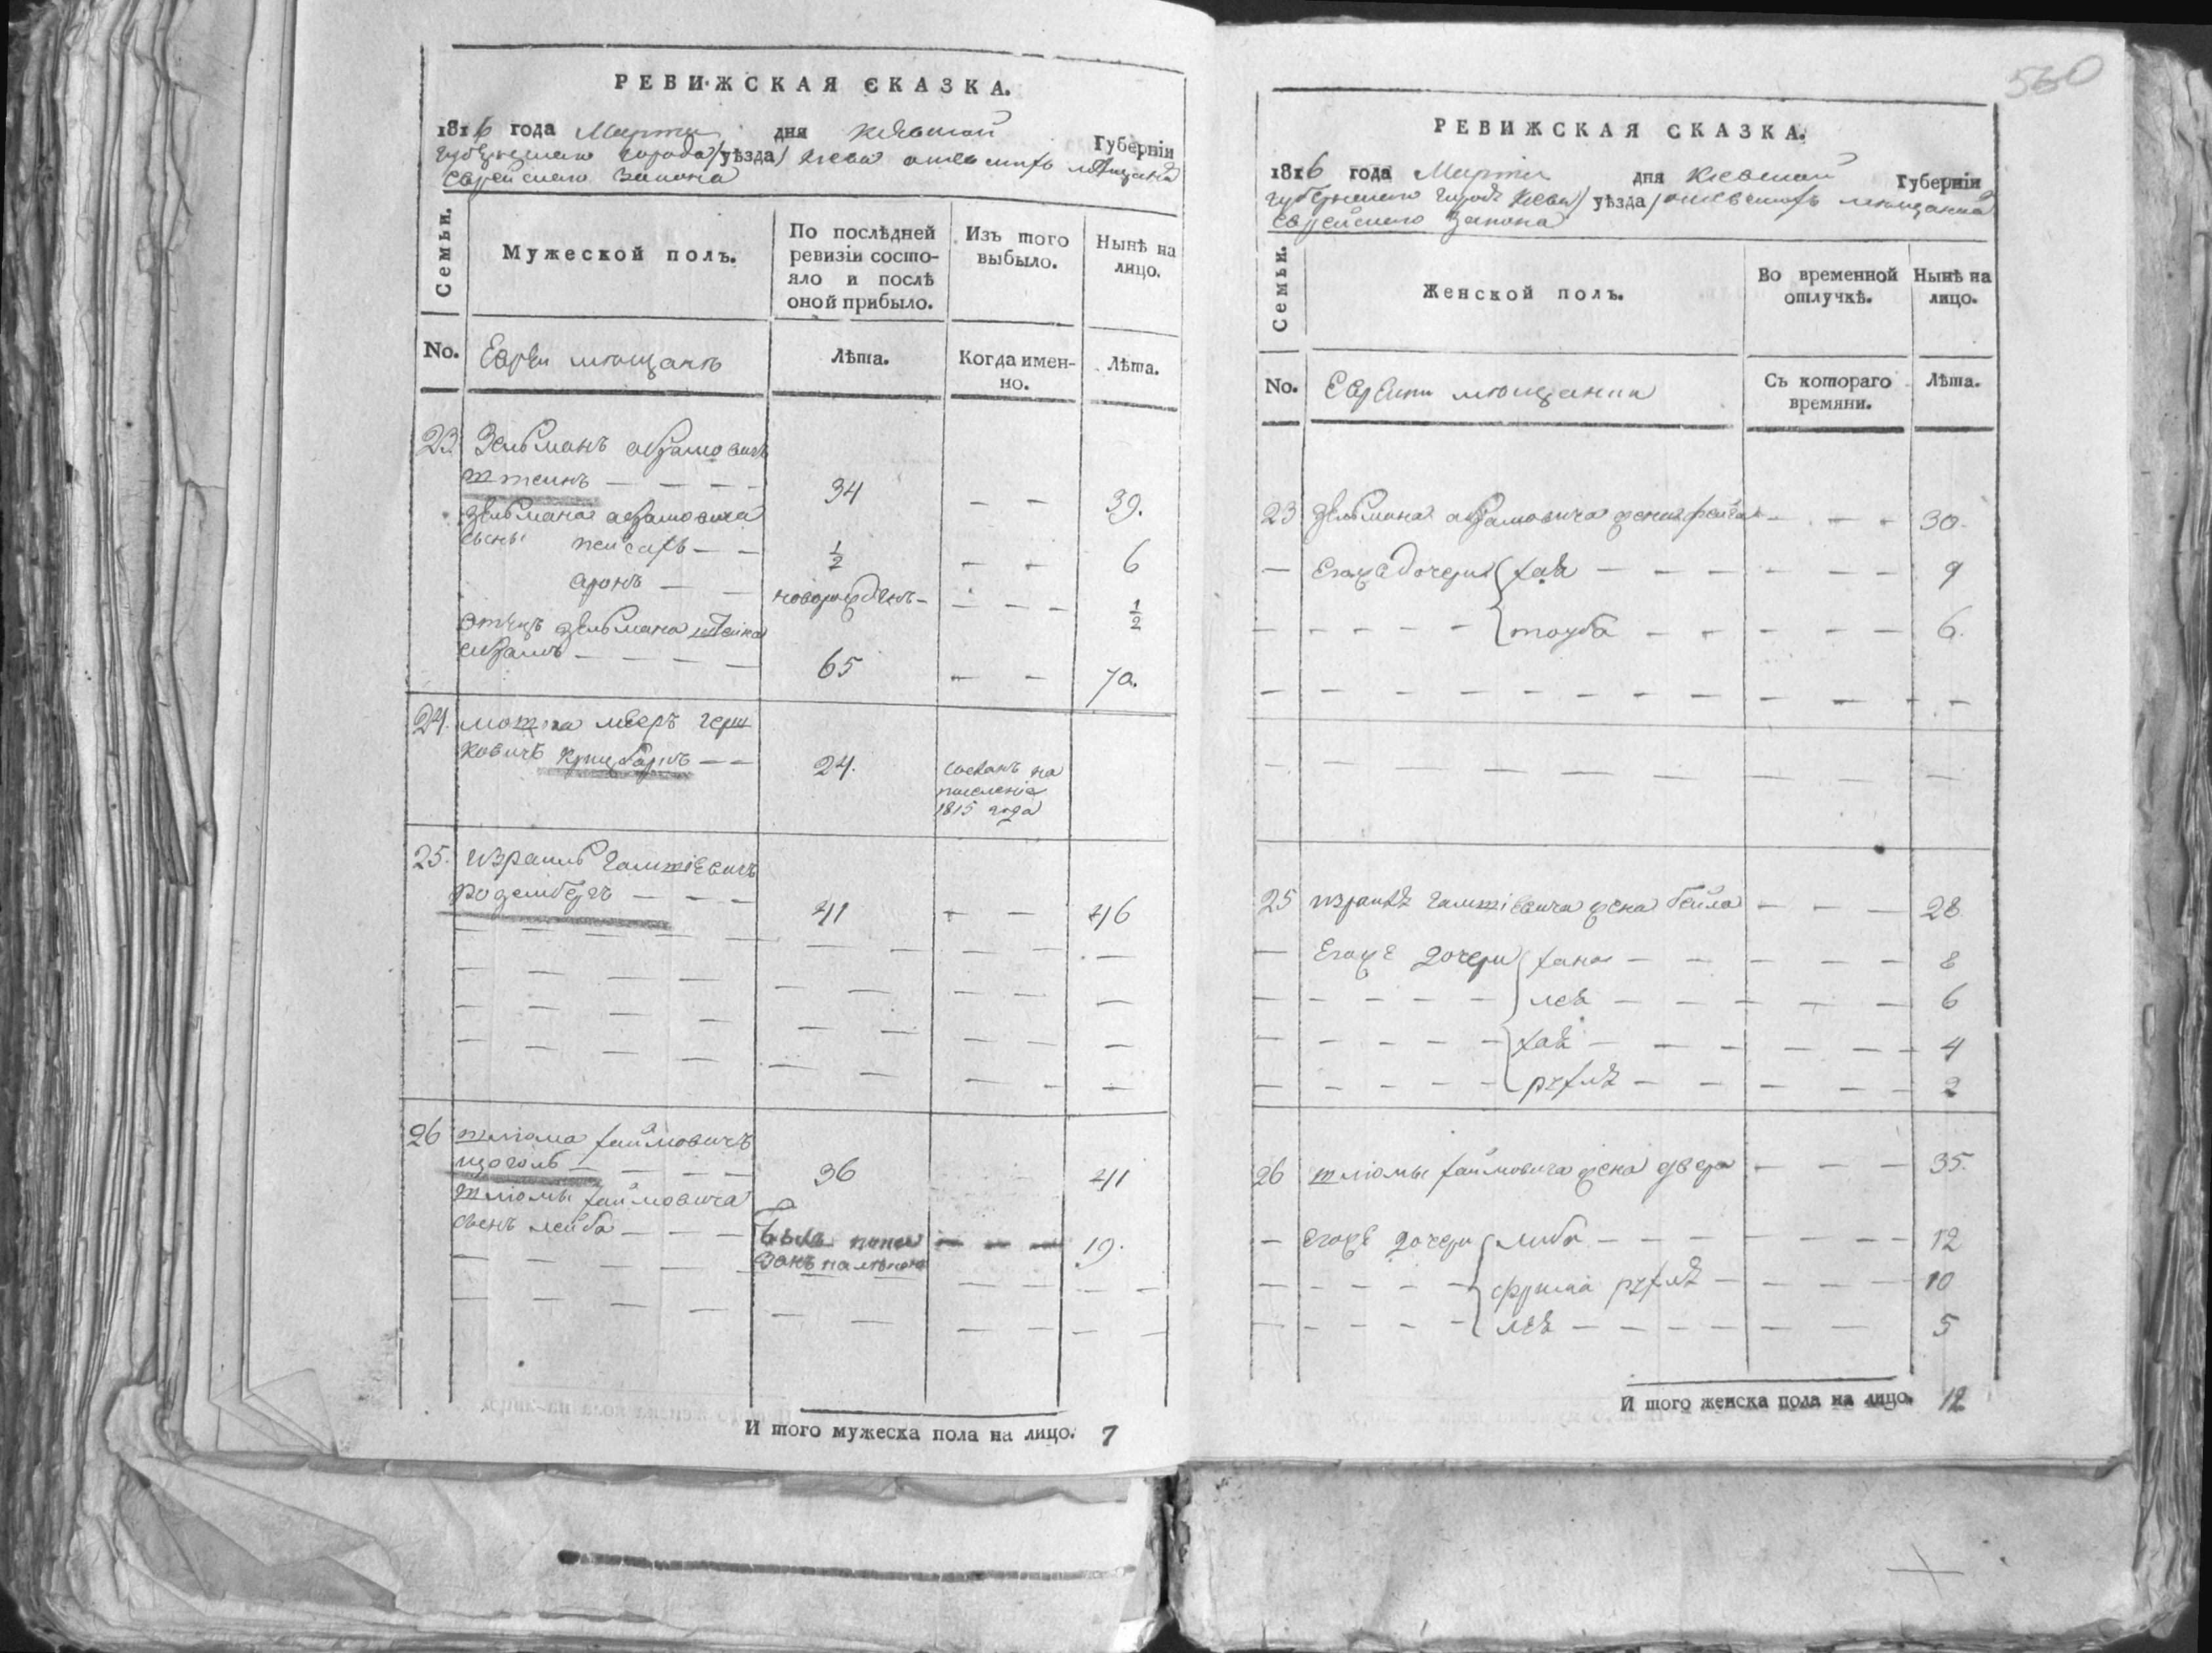 РЕВИЖСКАЯ СКАЗКА.
1816 года Марта дня Кіевской Губерніи
губернскаго города /уѣзда/ Кіева мѣщанъ
еврейскаго закона
Семьи.
Мужеской полъ.
По послѣдней ревизіи состо-
яло и послѣ оной прибыло.
Изъ того выбыло.
Нынѣ на лицо.
No.
Евреи мѣщане
Лѣта.
Когда имен-
но.
Лѣта.
23 Зельманъ абрамовичъ
штеинъ — — — — 34 — — 39.
Зельмана абрамовича
сыны пейсахъ — — 1/2 — — 6
аронъ — — новорожденъ — — — — 1/2
Отецъ Зельмана штейна
абрамъ — — — — 65 — — 70.
24. мошка мееръ герш
ковичъ — — 24. сосланъ на
поселеніе
1815 года
25. израиль
розенбергъ — — — 41 — — 46
26 шлюма хаймовичъ
щоголь — — — — 36 41
шлюмы хаймовича
сынъ лейба — — — былъ — — — 19.
И того мужеска пола на лицо. 7
560
РЕВИЖСКАЯ СКАЗКА.
1816 года Марта дня Кіевской Губерніи
губернскаго города Кіева /уѣзда/ мѣщанъ
еврейскаго закона
Семьи.
Женской полъ.
Во временной отлучкѣ.
Нынѣ на лицо.
No.
мѣщанки
Съ котораго времяни.
Лѣта.
23 Зельмана абрамовича жена фейга — — — 30.
— Егожѣ дочери хая — — — — — — 9
— — — — — тауба — — — — — 6.
25 израиля жена бейла — — — 28.
— Егожѣ дочери хана — — — — — 8
— — — — — лея — — — — — — 6
— — — — — хая — — — — — — 4
— — — — — рухля — — — — — 2
26 шлюмы хаймовича жена двера — — — 35.
— егожѣ дочери либа — — — — — — 12
— — — — — фрума рухля — — — — 10
— — — — — лея — — — — — — — 5
И того женска пола на лицо. 12